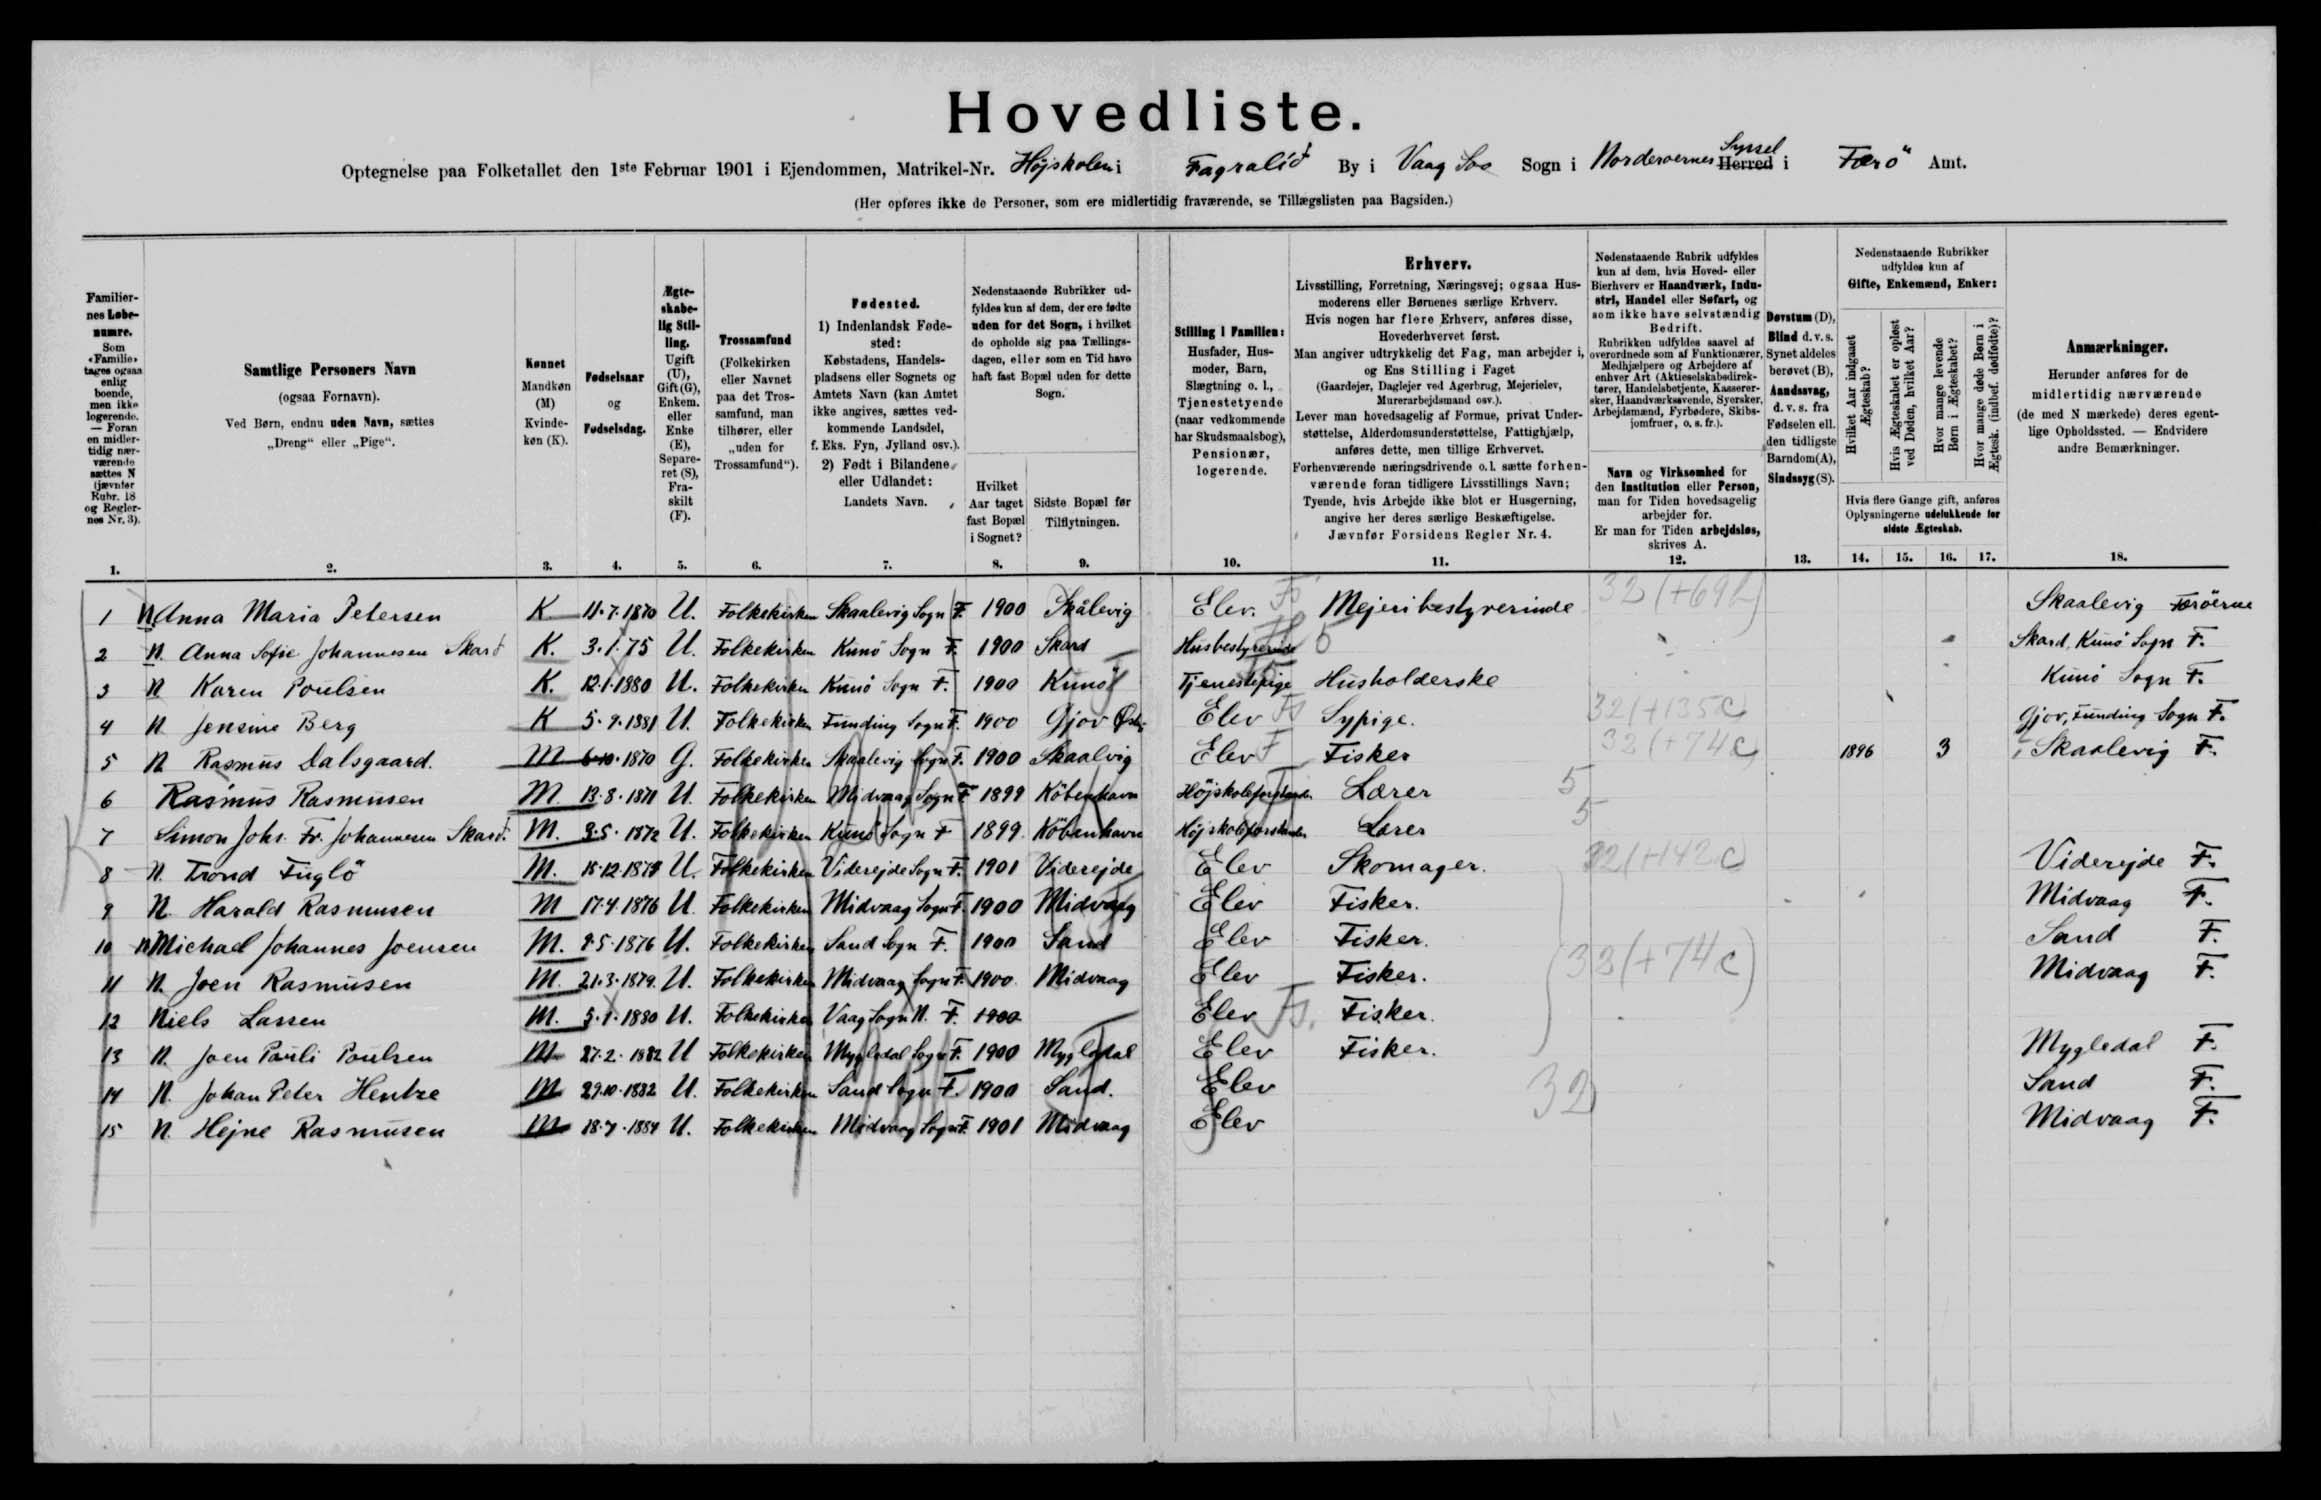 Hovedliste.
Optegnelse paa Folketallet den 1ste Februar 1901 i Ejendommen, Matrikel-Nr. Højskolen i Fagralíð By i Vaag Sogn i Norderoernes Syssel Herred i Færö Amt.
(Her opføres ikke de Personer, som ere midlertidig fraværende, se Tillægslisten paa Bagsiden.)
Familiernes Løbenumre. Som «Familie» tages ogsaa enlig boende, men ikke logerende. — Foran en midlertidig nærværende sættes N (jævnfør Rubr. 18 og Reglernes Nr. 3).
Samtlige Personers Navn (ogsaa Fornavn). Ved Børn, endnu uden Navn, sættes „Dreng“ eller „Pige“.
Kønnet Mandkøn (M) Kvindekøn (K).
Fødselsaar og Fødselsdag.
Ægteskabelig Stilling. Ugift (U), Gift (G), Enkem. eller Enke (E), Separeret (S), Fraskilt (F).
Trossamfund (Folkekirken eller Navnet paa det Trossamfund, man tilhører, eller „uden for Trossamfund“).
Fødested. 1) Indenlandsk Fødested: Købstadens, Handelspladsens eller Sognets og Amtets Navn (kan Amtet ikke angives, sættes vedkommende Landsdel, f. Eks. Fyn, Jylland osv.). 2) Født i Bilandene eller Udlandet: Landets Navn.
Nedenstaaende Rubrikker udfyldes kun af dem, der ere fødte uden for det Sogn, i hvilket de opholde sig paa Tællingsdagen, eller som en Tid have haft fast Bopæl uden for dette Sogn.
Hvilket Aar taget fast Bopæl i Sognet?
Sidste Bopæl før Tilflytningen.
Stilling i Familien: Husfader, Husmoder, Barn, Slægtning o. l., Tjenestetyende (naar vedkommende har Skudsmaalsbog), Pensionær, logerende.
Erhverv.
Livsstilling, Forretning, Næringsvej; ogsaa Husmoderens eller Børnenes særlige Erhverv.
Hvis nogen har flere Erhverv, anføres disse, Hovederhvervet først.
Man angiver udtrykkelig det Fag, man arbejder i, og Ens Stilling i Faget
(Gaardejer, Daglejer ved Agerbrug, Mejerielev, Murerarbejdsmand osv.).
Lever man hovedsagelig af Formue, privat Understøttelse, Alderdomsunderstøttelse, Fattighjælp, anføres dette, men tillige Erhvervet.
Forhenværende næringsdrivende o. l. sætte forhenværende foran tidligere Livsstillings Navn;
Tyende, hvis Arbejde ikke blot er Husgerning, angive her deres særlige Beskæftigelse.
Jævnfør Forsidens Regler Nr. 4.
Nedenstaaende Rubrik udfyldes kun af dem, hvis Hoved- eller Bierhverv er Haandværk, Industri, Handel eller Søfart, og som ikke have selvstændig Bedrift.
Rubrikken udfyldes saavel af overordnede som af Funktionærer, Medhjælpere og Arbejdere af enhver Art (Aktieselskabsdirektører, Handelsbetjente, Kasserersker, Haandværkssvende, Syersker, Arbejdsmænd, Fyrbødere, Skibsjomfruer, o. s. fr.).
Navn og Virksomhed for den Institution eller Person, man for Tiden hovedsagelig arbejder for.
Er man for Tiden arbejdsløs, skrives A.
Døvstum (D), Blind d. v. s. Synet aldeles berøvet (B), Aandssvag, d. v. s. fra Fødselen ell. den tidligste Barndom (A), Sindssyg (S).
Nedenstaaende Rubrikker udfyldes kun af Gifte, Enkemænd, Enker:
Hvilket Aar indgaaet Ægteskab?
Hvis Ægteskabet er opløst ved Døden, hvilket Aar?
Hvor mange levende Børn i Ægteskabet?
Hvor mange døde Børn i Ægtesk. (indbef. dødfødte)?
Hvis flere Gange gift, anføres Oplysningerne udelukkende for sidste Ægteskab.
Anmærkninger. Herunder anføres for de midlertidig nærværende (de med N mærkede) deres egentlige Opholdssted. — Endvidere andre Bemærkninger.
1. 2. 3. 4. 5. 6. 7. 8. 9. 10. 11. 12. 13. 14. 15. 16. 17. 18.
1 N Anna Maria Petersen K 11.7.1870 U. Folkekirken Skaalevig Sogn F. 1900 Skålevig Elev. Mejeribestyrerinde Skaalevig Færöerne
2 N. Anna Sofie Johannesen Skarð K. 3.1.75 U. Folkekirken Kunö Sogn F. 1900 Skard Husbestyrerinde Skard, Kunö Sogn F.
3 N Karen Poulsen K. 12.1.1880 U. Folkekirken Kunö Sogn F. 1900 Kunö Tjenestepige Husholderske Kunö Sogn F.
4 N. Jensine Berg K 5.9.1881 U. Folkekirken Funding Sogn F. 1900 Gjov Elev Sypige. 32(+135c) Gjov, Funding Sogn F.
5 N Rasmus Dalsgaard. M 6.10.1870 G. Folkekirken Skaalevig Sogn F. 1900 Skaalvig Elev Fisker 32(+74c) 1896 3 Skaalevig F.
6 Rasmus Rasmusen M. 13.8.1871 U. Folkekirken Midvaag Sogn F 1899 Köbenhavn Höjskoleforstander Lærer 5
7 Simon Johs. Fr. Johannesen Skarð. M. 9.5.1872 U. Folkekirken Kunö Sogn F 1899. Köbenhavn Höjskoleforstander Lærer 5
8 N. Trond Fuglö M. 18.12.1874 U. Folkekirken Viderejde Sogn F. 1901 Viderejde Elev Skomager. 32(+142c) Viderejde F.
9 N. Harald Rasmusen M 17.4.1876 U. Folkekirken Midvaag Sogn F. 1900 Midvaag Elev Fisker. Midvaag F.
10 N Michael Johannes Joensen M. 8.5.1876 U. Folkekirken Sand Sogn F. 1900 Sand Elev Fisker. Sand F.
11 N. Joen Rasmusen M. 21.3.1879. U. Folkekirken Midvaag Sogn F. 1900 Midvaag Elev Fisker. 32(+74c) Midvaag F.
12 Niels Lassen M. 5.1.1880 U. Folkekirken Vaag Sogn N. F. 1900 Elev Fisker.
13 N. Joen Pauli Poulsen M 27.2.1882 U Folkekirken Mygledal Sogn F. 1900 Mygledal Elev Fisker. Mygledal F.
14 N. Johan Peter Hentze M 29.10.1882 U. Folkekirken Sand Sogn F. 1900 Sand. Elev 32 Sand F.
15 N. Hejne Rasmusen M 18.7.1884 U. Folkekirken Midvaag Sogn F. 1901 Midvaag Elev Midvaag F.